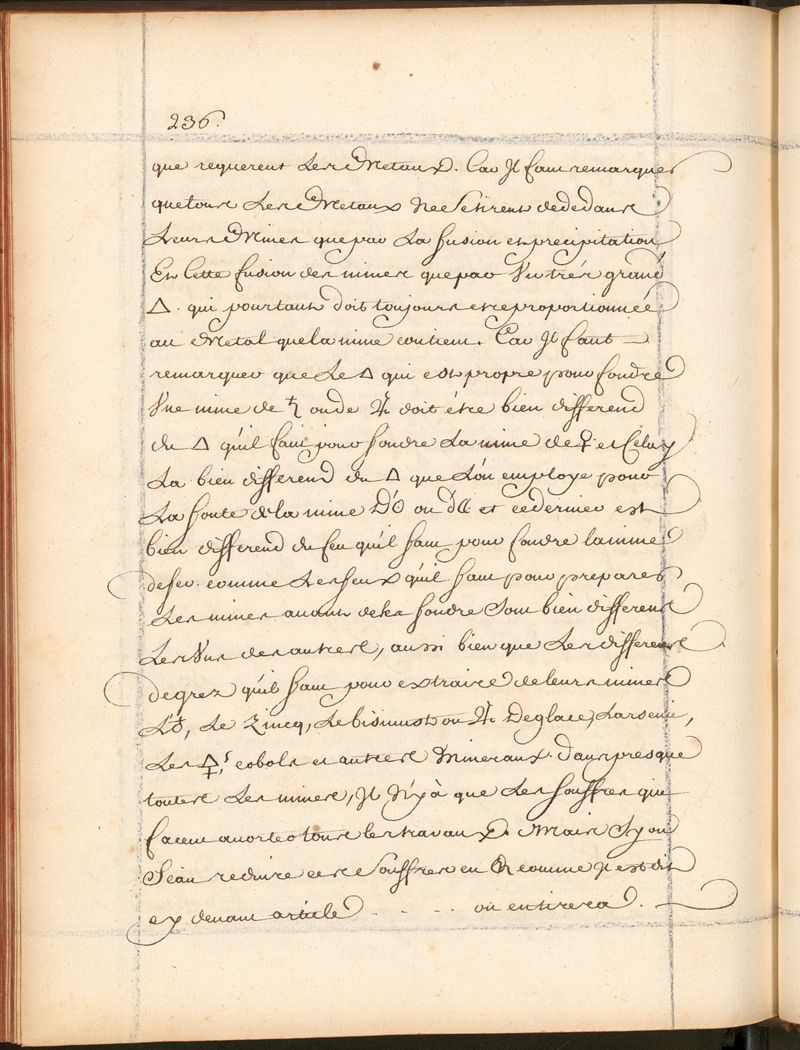 236.
que requerent Les Metaux. Car Jl faut remarquer
que tous Les Metaux Ne Se tirent de dedans
Leurs Mines que par La fusion et precipitation
Et Cette fusion des mines que par Vn trés grand
△. qui pourtant doit toujours etre proportionnée
au Metal que la mine contient. Car Jl faut
remarquer que Le △ qui est propre pour fondre
Vne mine de ♄ ou de ♃ doit être bien differend
du △ qu'il faut pour fondre La mine de ♀ et Celuy
La bien differend du △ que L'on employe pour
La fonte de la mine D'☉ ou de ☾ et ce dernier est
bien differend du feu qu'il faut pour fondre la mine
de fer. comme Les feux qu'il faut pour preparer
Les mines avant de les fondre Sont bien differens
Les Vns des autres, aussi bien que Les differens
degrez qu'il faut pour extraire de leurs mines
L'♁, Le Zincq, Le bismuth ou ♃ De glace, L'arsenic,
Les 🜍s, cobols et autres Mineraux. dans presque
toutes Les mines, Jl N'y à que Les souffres qui
facent avorter tous les travaux. Mais Sy on
Scait reduire ces Souffres en comme Jl est dit
cy devant article . . . . on en tirera.